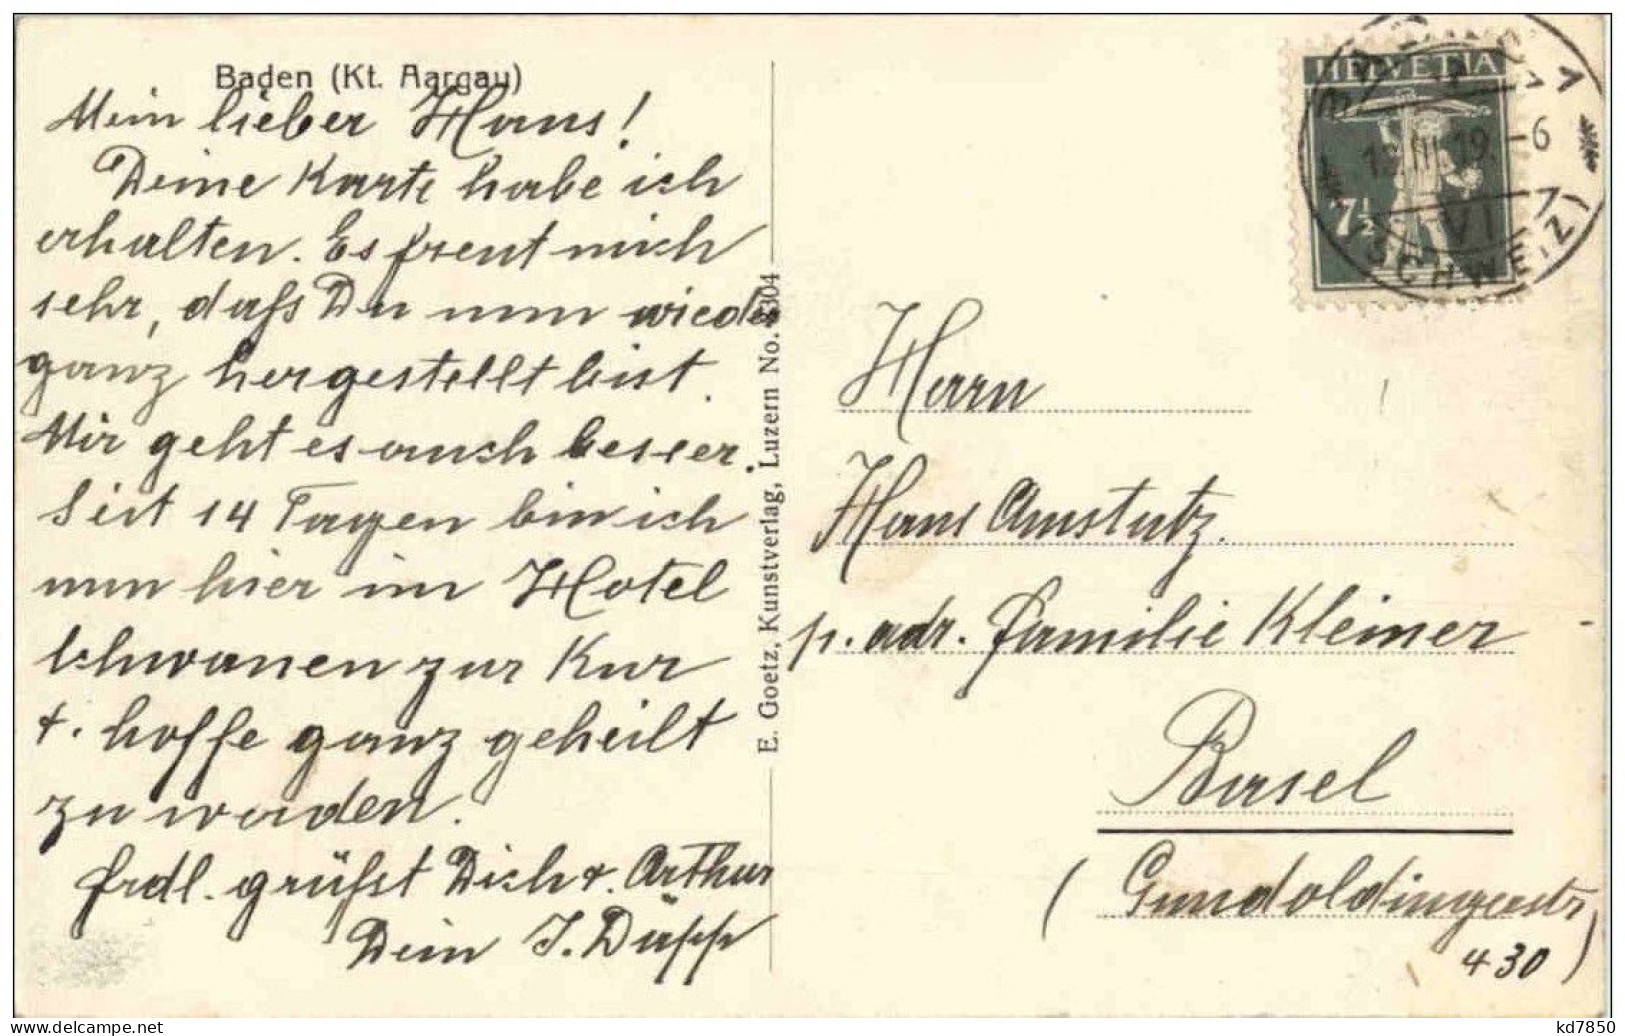 Baden (Kt. Aargau)
Mein lieber Hans!
Deine Karte habe ich
erhalten. Es freut mich
sehr, dass Du nun wieder
ganz hergestellt bist.
Mir geht es auch besser.
Seit 14 Tagen bin ich
nun hier im Hotel
Schwanen zur Kur
+. hoffe ganz geheilt
zu werden.
frdl. grüsst Dich +. Arthur
Dein J. Düpp
E. Goetz, Kunstverlag, Luzern No. 304
HELVETIA
7½
III.19. -6
VI
(SCHWEIZ)
Herrn
Hans Amstutz.
p. adr. Familie Kleiner
Basel
(Gundoldingerstr
430)
kd7850